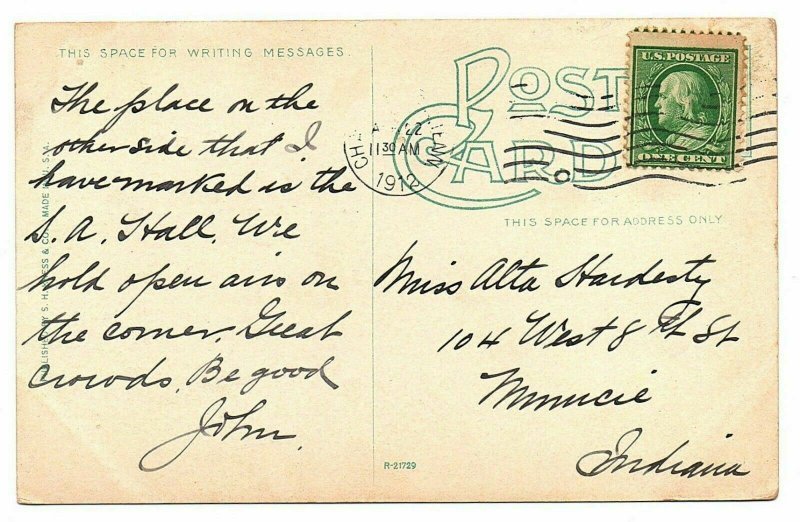 THIS SPACE FOR WRITING MESSAGES.
The place on the
other side that I
have marked is the
S. A. Hall. We
hold open airs on
the corner. Great
crowds. Be good
John.
S. H. & CO. MADE IN
POST CARD
U.S. POSTAGE
ONE CENT
22
11 30 AM
1912
THIS SPACE FOR ADDRESS ONLY
Miss Alta Hardesty
104 West 8th St
Munucie
Indiana
R-21729